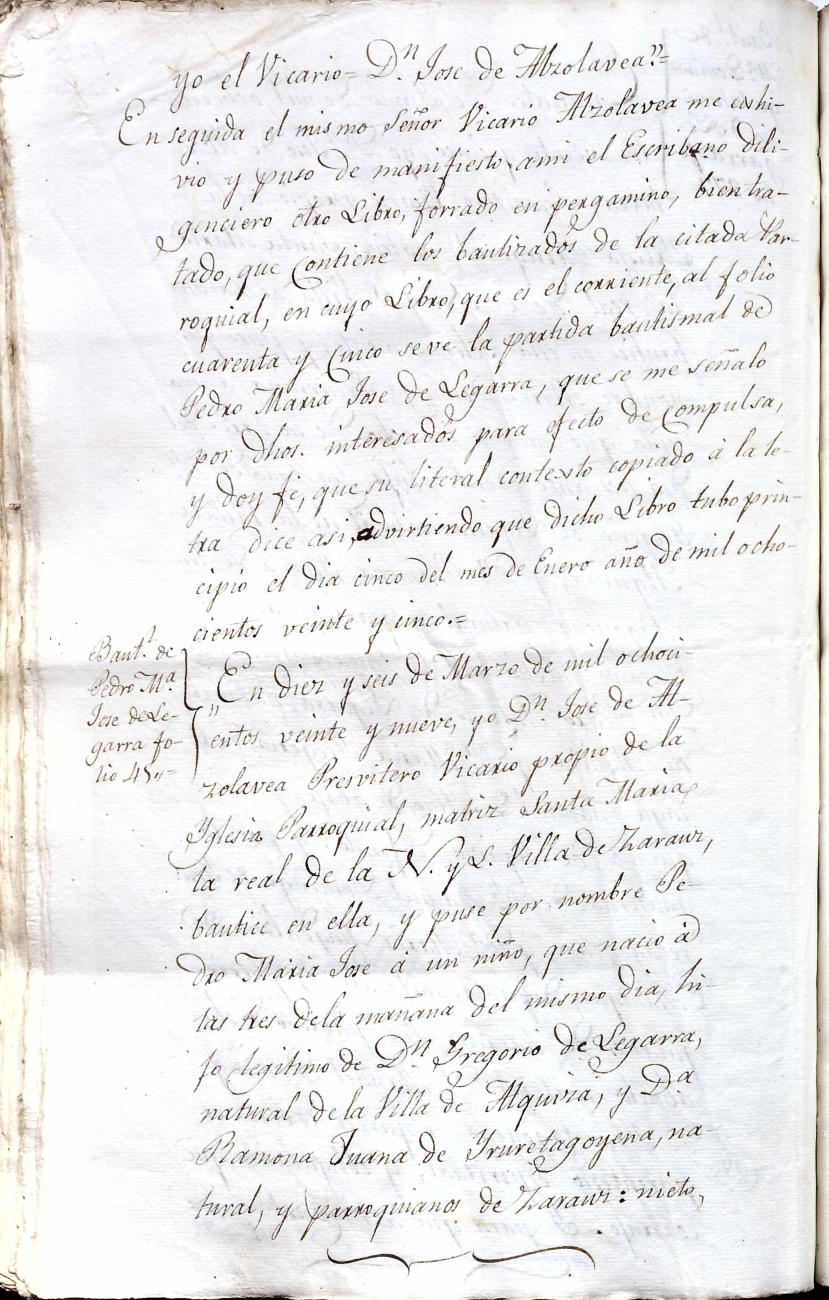 yo el Vicario= Dn. Jose de Alzolavea"=
En seguida el mismo Señor Vicario Alzolavea me exhi-
vio y puso de manifiesto ami el Escribano dili-
genciero otro Libro, forrado en pergamino, bien tra-
tado, que contiene los bautizados de la citada Par-
roquial, en cuyo Libro, que es el corriente, al folio
cuarenta y Cinco se ve la partida bautismal de
Pedro Maria Jose de Legarra, que se me señalo
por dhos. interesados para efecto de Compulsa,
y doy fe, que su literal contexto copiado á la le-
tra dice asi, advirtiendo que dicho Libro tubo prin-
cipio el dia cinco del mes de Enero año de mil ocho-
cientos veinte y cinco.=
Baut.l de
Pedro Ma.
Jose de Le-
garra fo-
lio 45,,=
"En diez y seis de Marzo de mil ochoci-
entos veinte y nueve, yo Dn. Jose de Al-
zolavea Presvitero Vicario propio de la
Yglesia Parroquial, matriz Santa Maria
la real de la N. y L. Villa de Zarauz,
bautice en ella, y puse por nombre Pe-
dro Maria Jose á un niño, que nacio á
las tres de la mañana del mismo dia, hi-
jo legitimo de Dn. Gregorio de Legarra,
natural de la Villa de Alquiza, y Da
Ramona Juana de Yruretagoyena, na-
tural, y parroquianos de Zarauz: nieto,